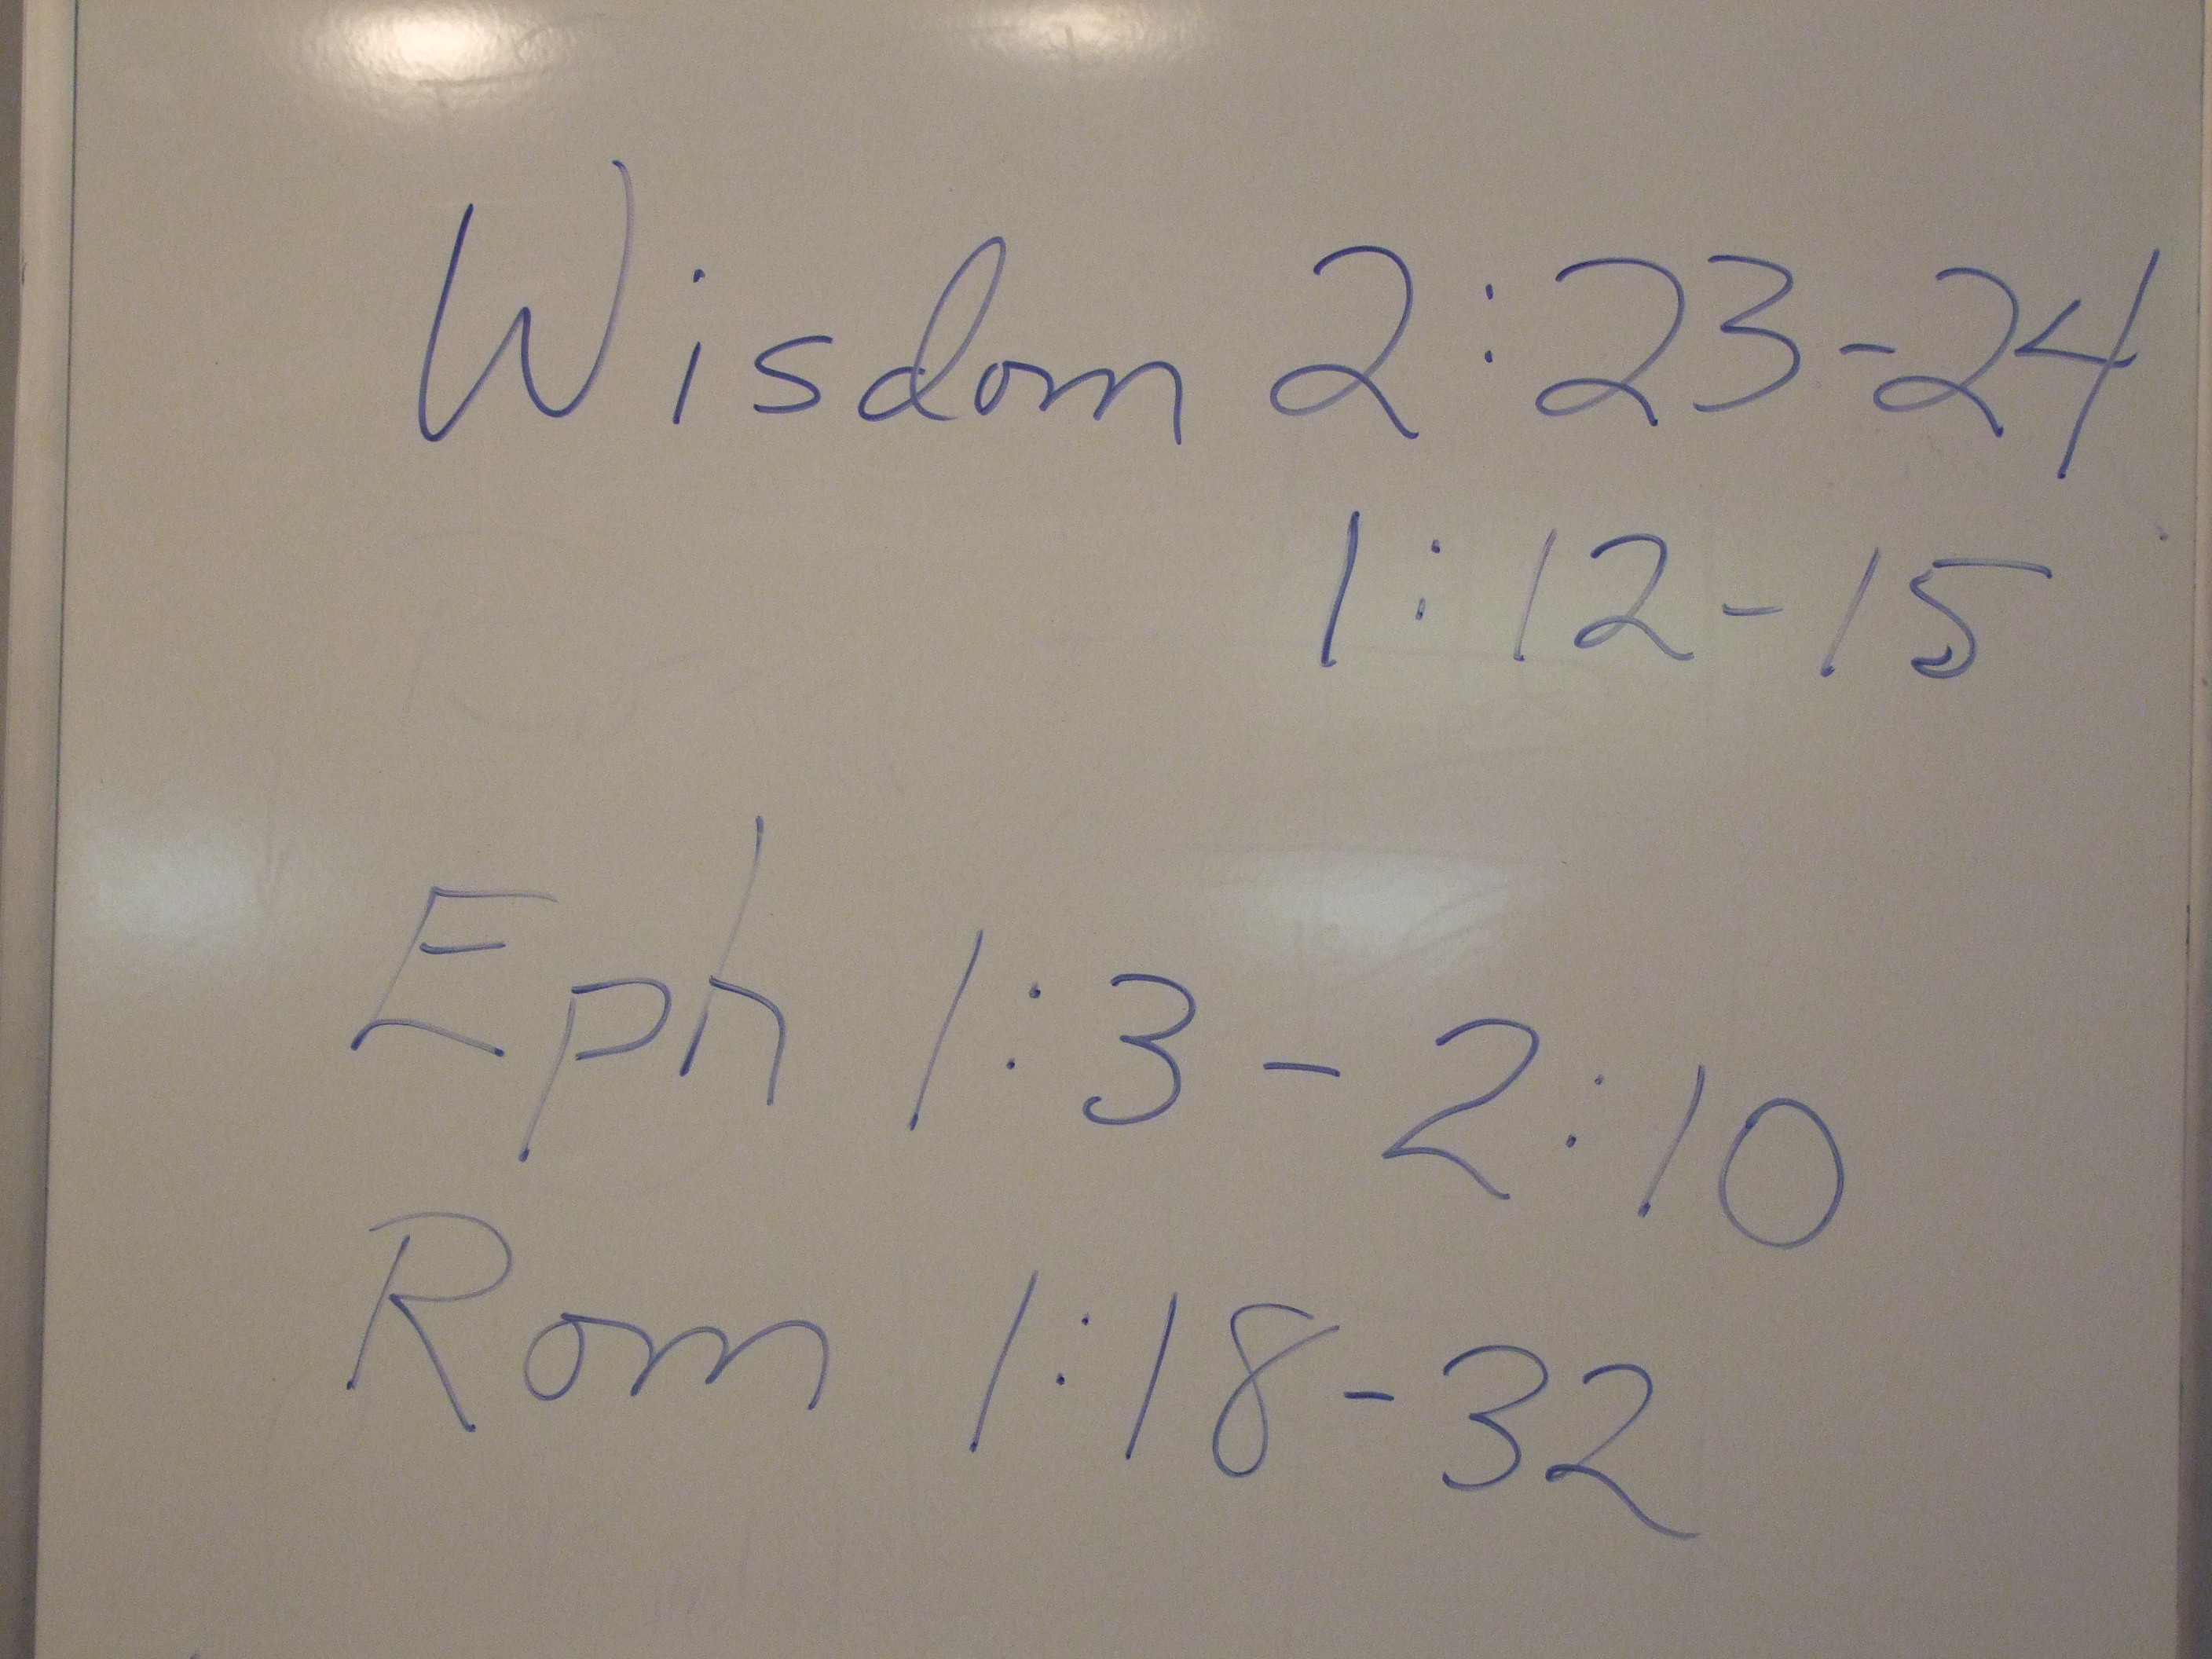 Wisdom 2:23-24
1:12-15
Eph 1:3-2:10
Rom 1:18-32